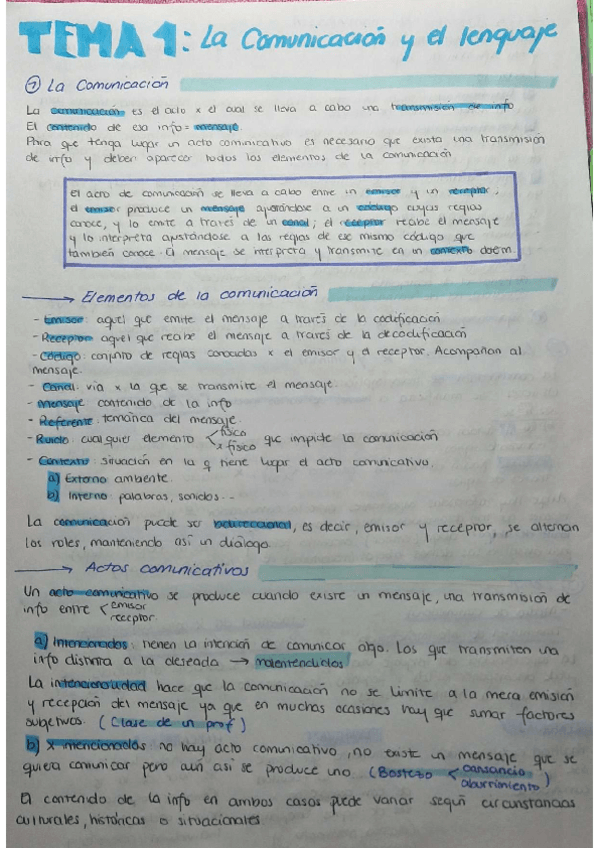 TEMA 1: La Comunicación y el lenguaje
① La Comunicación
La comunicación es el acto x el cual se lleva a cabo una transmisión de info
El contenido de esa info = mensaje.
Para que tenga lugar un acto comunicativo es necesario que exista una transmisión
de info y deben aparecer todos los elementos de la comunicación
El acto de comunicación se lleva a cabo entre un emisor y un receptor,
el emisor produce un mensaje ajustándose a un código cuyas reglas
conoce, y lo emite a través de un canal; el receptor recibe el mensaje
y lo interpreta ajustándose a las reglas de ese mismo código que
también conoce. El mensaje se interpreta y transmite en un contexto determ.
→ Elementos de la comunicación
- Emisor: aquel que emite el mensaje a través de la codificación
- Receptor: aquel que recibe el mensaje a través de la decodificación
- Código: conjunto de reglas conocidas x el emisor y el receptor. Acompañan al
mensaje.
- Canal: vía x la que se transmite el mensaje.
- Mensaje: contenido de la info
- Referente: temática del mensaje.
- Ruido: cualquier elemento < físico
x físico que impide la comunicación
- Contexto: situación en la q tiene lugar el acto comunicativo.
a) Externo: ambiente.
b) Interno: palabras, sonidos...
La comunicación puede ser bidireccional, es decir, emisor y receptor, se alternan
los roles, manteniendo así un diálogo.
→ Actos comunicativos
Un acto comunicativo se produce cuando existe un mensaje, una transmisión de
info entre < emisor
receptor.
a) Intencionados: tienen la intención de comunicar algo. Los que transmiten una
info distinta a la deseada → malentendidos
La intencionalidad hace que la comunicación no se limite a la mera emisión
y recepción del mensaje ya que en muchas ocasiones hay que sumar factores
subjetivos. (Clase de un prof)
b) x intencionados: no hay acto comunicativo, no existe un mensaje que se
quiera comunicar pero aún así se produce uno (Bostezo < cansancio
aburrimiento)
El contenido de la info en ambos casos puede variar según circunstancias
culturales, históricas o situacionales